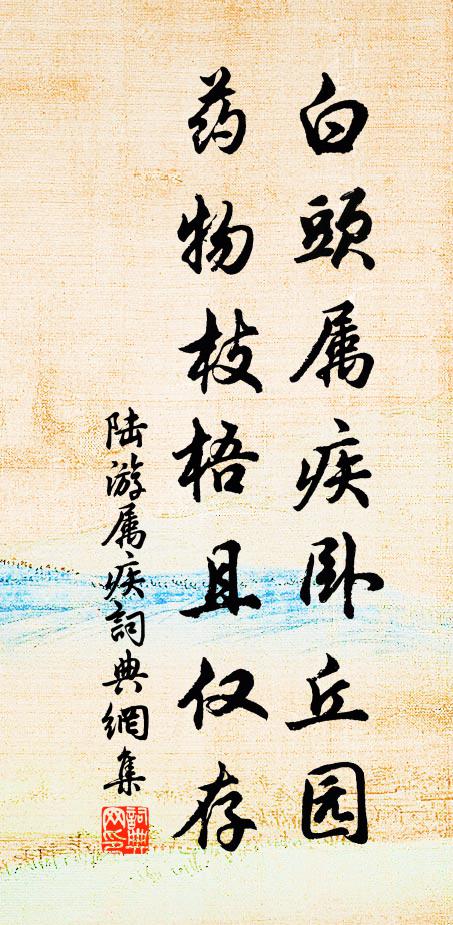 白頭属疾卧丘园
药物枝梧且仅存
陆游属疾詞典網集
詞典网印